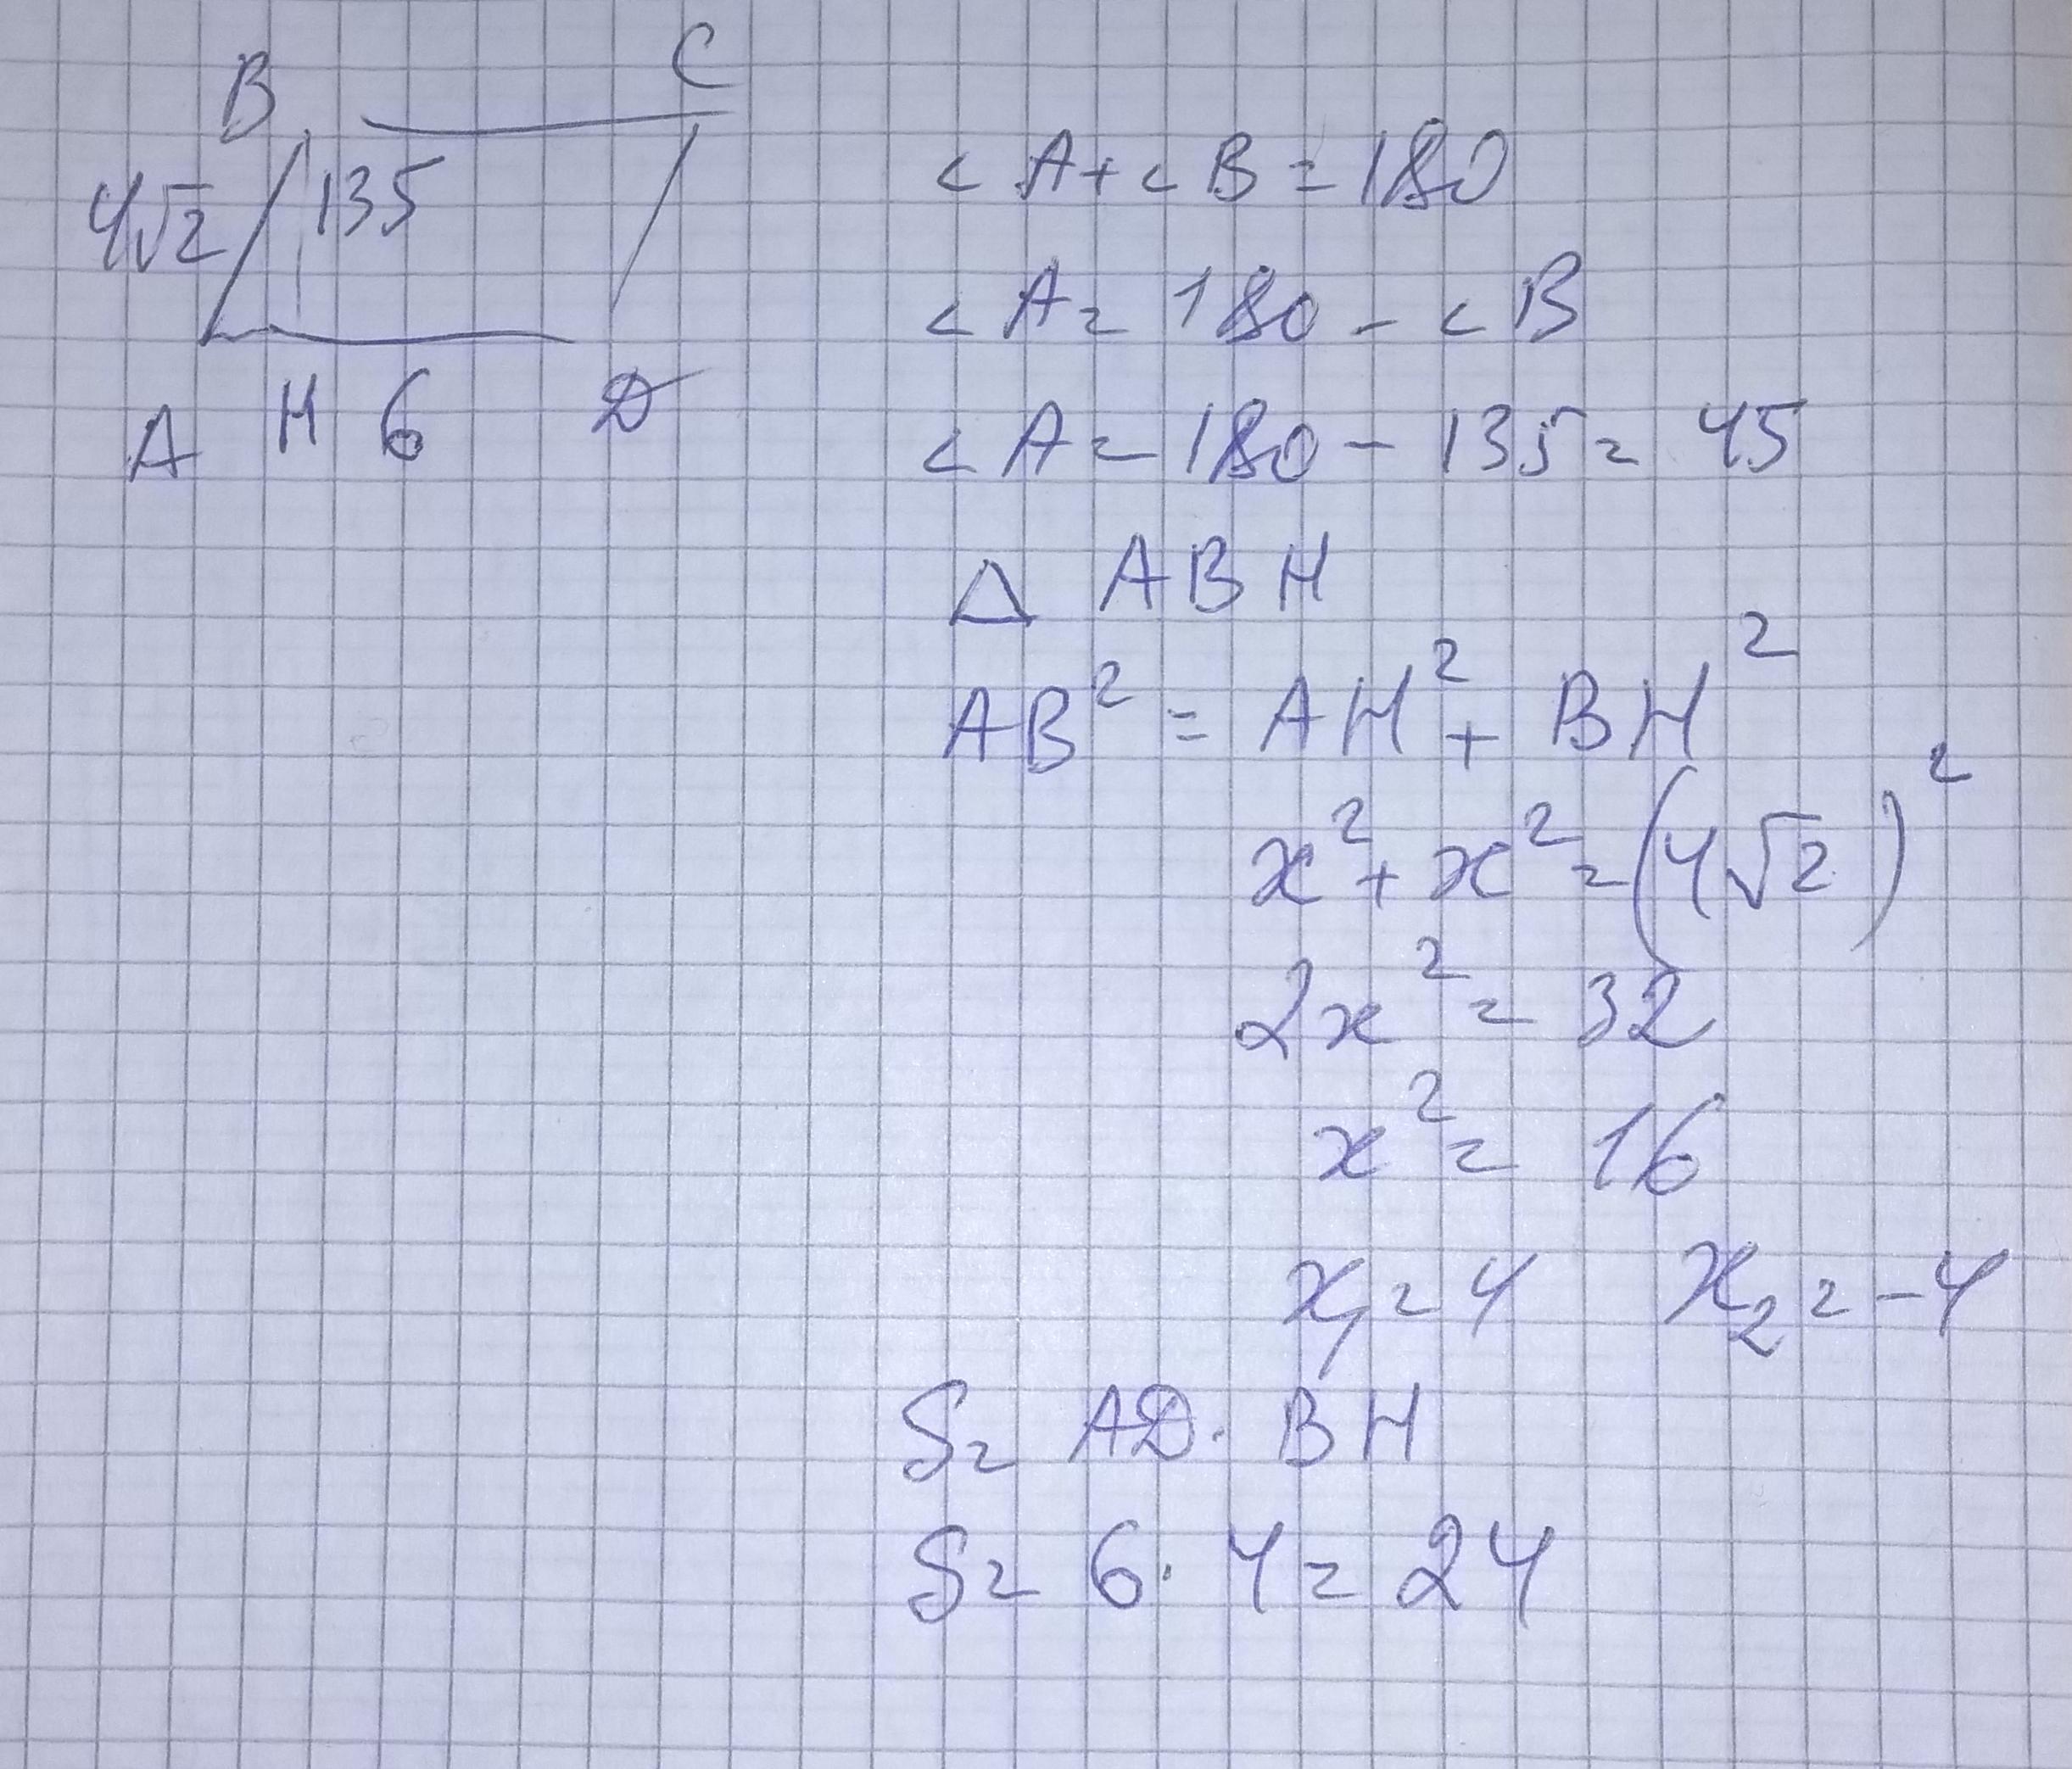 B C
4√2 135
A H 6 D
< A + < B = 180
< A = 180 - < B
< A = 180 - 135 = 45
△ ABH
AB² = AH² + BH²
x² + x² = (4√2)²
2x² = 32
x² = 16
x₁ = 4 x₂ = -4
S = AD · BH
S = 6 · 4 = 24